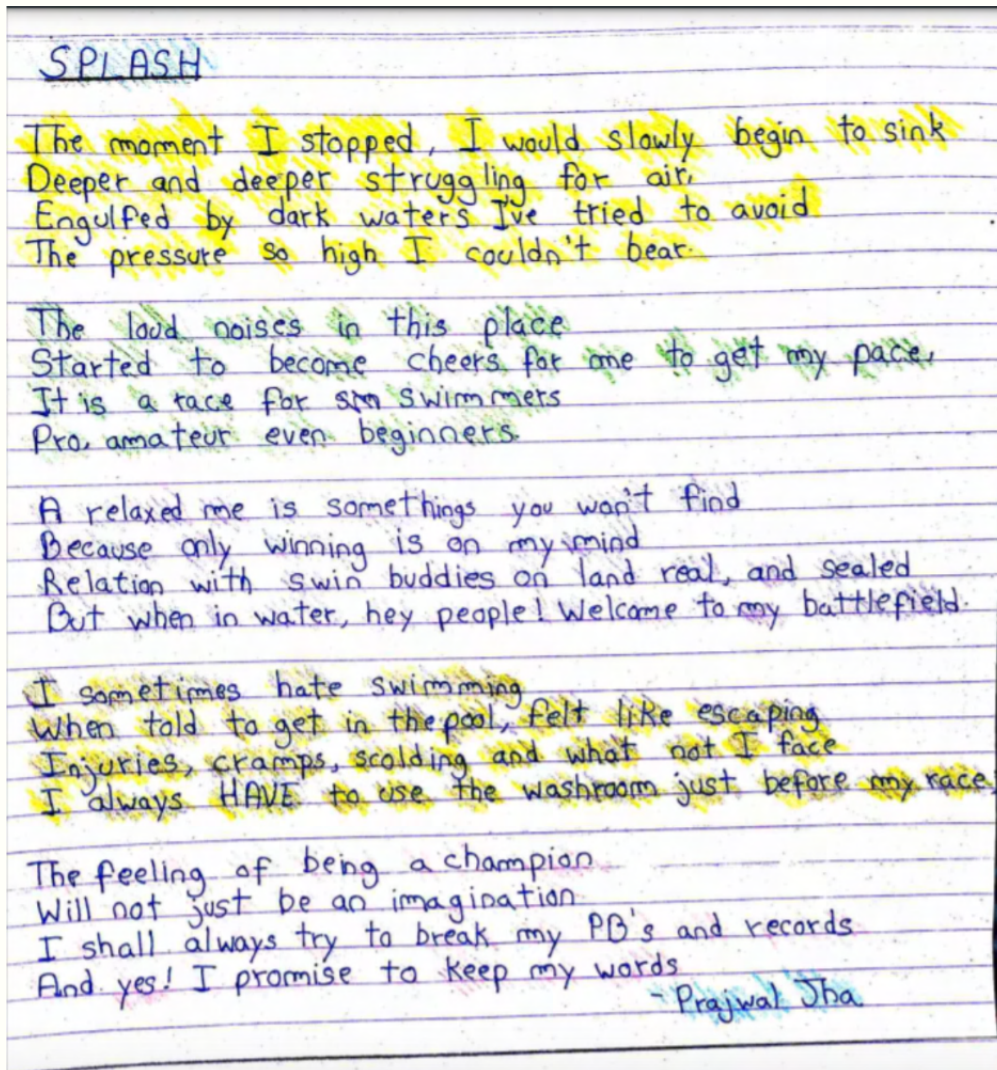 SPLASH
The moment I stopped, I would slowly begin to sink
Deeper and deeper struggling for air,
Engulfed by dark waters I've tried to avoid
The pressure so high I couldn't bear.
The loud noises in this place
Started to become cheers for me to get my pace,
It is a race for swimmers
Pro, amateur even beginners.
A relaxed me is somethings you won't find
Because only winning is on my mind
Relation with swin buddies on land real, and sealed
But when in water, hey people! Welcome to my battlefield.
I sometimes hate swimming
When told to get in the pool, felt like escaping
Injuries, cramps, scolding and what not I face
I always HAVE to use the washroom just before my race
The feeling of being a champion
Will not just be an imagination
I shall always try to break my PB's and records
And yes! I promise to keep my words
- Prajwal Jha